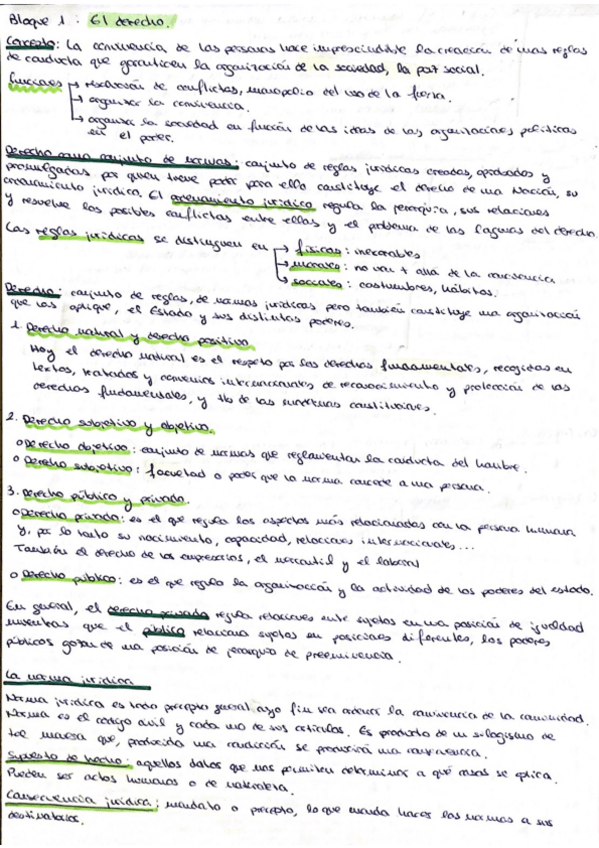 Bloque 1 : El derecho.
Concepto: La convivencia de las personas hace imprescindible la creación de unas reglas
de conducta que garanticen la organización de la sociedad, la paz social.
Funciones → resolución de conflictos, monopolio del uso de la fuerza.
→ organizar la convivencia.
→ organizar la sociedad en función de las ideas de las organizaciones políticas
en el poder.
Derecho como conjunto de normas: conjunto de reglas jurídicas creadas, aprobadas y
promulgadas por quien tiene poder para ello constituye el derecho de una Nación, su
ordenamiento jurídico. El ordenamiento jurídico regula la jerarquía, sus relaciones
y resuelve los posibles conflictos entre ellas y el problema de las lagunas del derecho.
Las reglas jurídicas se distinguen en → físicas: inexorables
→ morales: no van + allá de la conciencia
→ sociales: costumbres, hábitos.
Derecho: conjunto de reglas, de normas jurídicas pero también constituye una organización
que las aplique, el Estado y sus distintos poderes.
1. Derecho natural y derecho positivo
Hoy el derecho natural es el respeto por los derechos fundamentales, recogidos en
textos, tratados y convenios internacionales de reconocimiento y protección de los
derechos fundamentales, y tb de las constituciones.
2. Derecho subjetivo y objetivo.
o Derecho objetivo: conjunto de normas que reglamentan la conducta del hombre.
o Derecho subjetivo: facultad o poder que la norma concede a una persona.
3. Derecho público y privado.
o Derecho privado: es el que regula los aspectos más relacionados con la persona humana
y, por lo tanto su nacimiento, capacidad, relaciones internacionales...
También el derecho de los empresarios, el mercantil y el laboral
o Derecho público: es el que regula la organización y la actividad de los poderes del estado.
En general, el derecho privado regula relaciones entre sujetos en una posición de igualdad
mientras que el público relaciona sujetos en posiciones diferentes, los poderes
públicos gozan de una posición de jerarquía de preeminencia.
La norma jurídica
Norma jurídica es todo precepto general cuyo fin sea ordenar la convivencia de la comunidad.
Norma es el código civil y cada uno de sus artículos. Es producto de un silogismo de
tal manera que, producida una condición se producirá una consecuencia.
Supuesto de hecho: aquellos datos que nos permiten determinar a qué casos se aplica.
Pueden ser actos humanos o de naturaleza.
Consecuencia jurídica: mandato o precepto, lo que manda hacer las normas a sus
destinatarios.